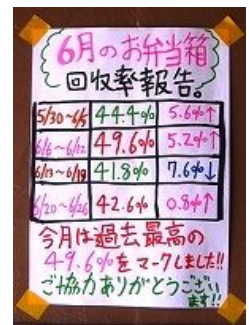 6月のお弁当箱
回収率報告。
5/30~6/5 44.4% 5.6%↑
6/6~6/12 49.6% 5.2%↑
6/13~6/19 41.8% 7.6%↓
6/20~6/26 42.6% 0.8%↑
今月は過去最高の
49.6%をマークしました!!
ご協力ありがとうござい
ます!!